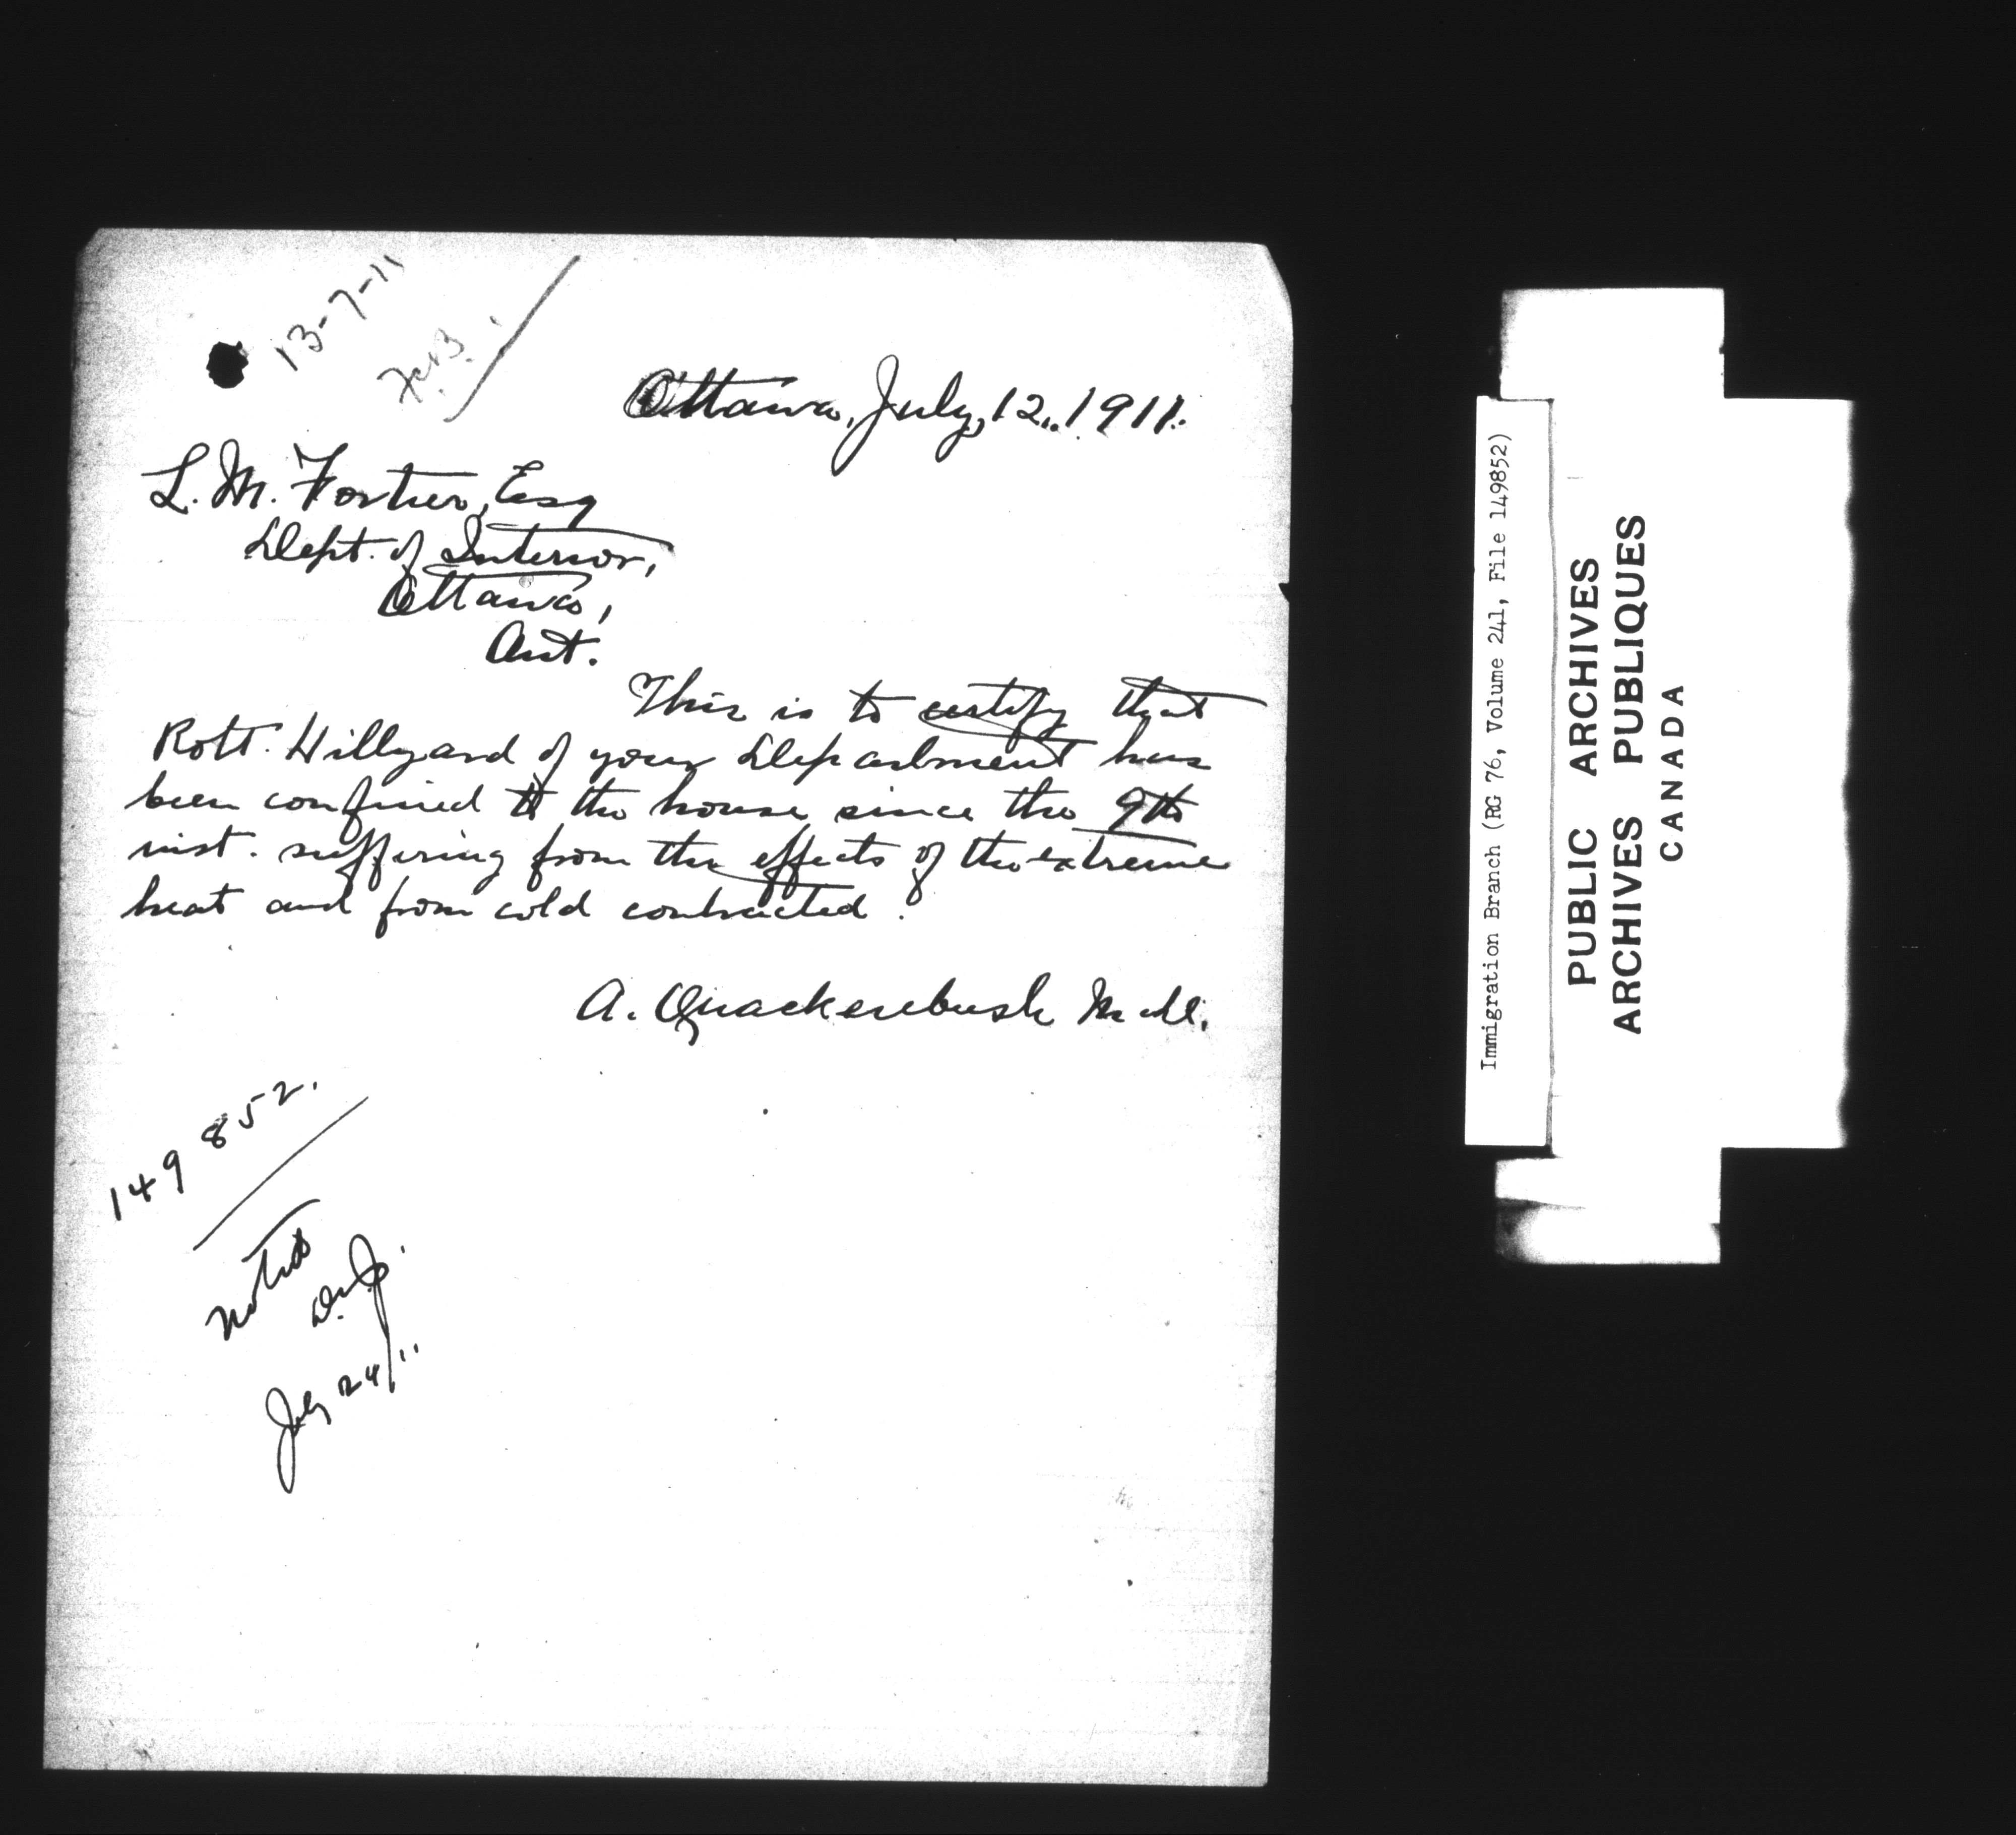 13-7-11
Ottawa, July, 12, 1911.
L. M. Fortier, Esq
Dept. of Interior,
Ottawa,
Ont.
This is to certify that
Robt. Hillyard of your Department has
been confined to the house since the 9th
inst. suffering from the effects of the extreme
heat and from cold contracted.
A. Quackenbush M.D.
149852.
Noted
July 24/11
Immigration Branch (RG 76, Volume 241, File 149852)
PUBLIC ARCHIVES
ARCHIVES PUBLIQUES
CANADA